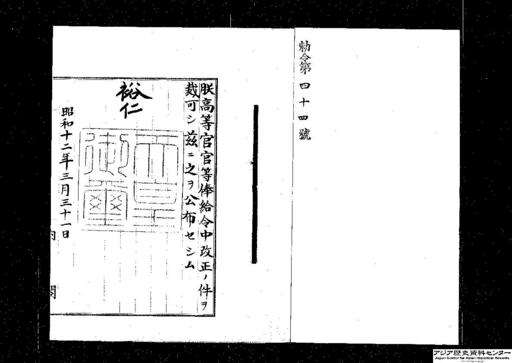 勅令第四十四號
朕高等官官等俸給令中改正ノ件ヲ
裁可シ茲ニ之ヲ公布セシム
裕仁
天皇御璽
昭和十二年三月三十一日
内閣
アジア歴史資料センター
Japan Center for Asian Historical Records